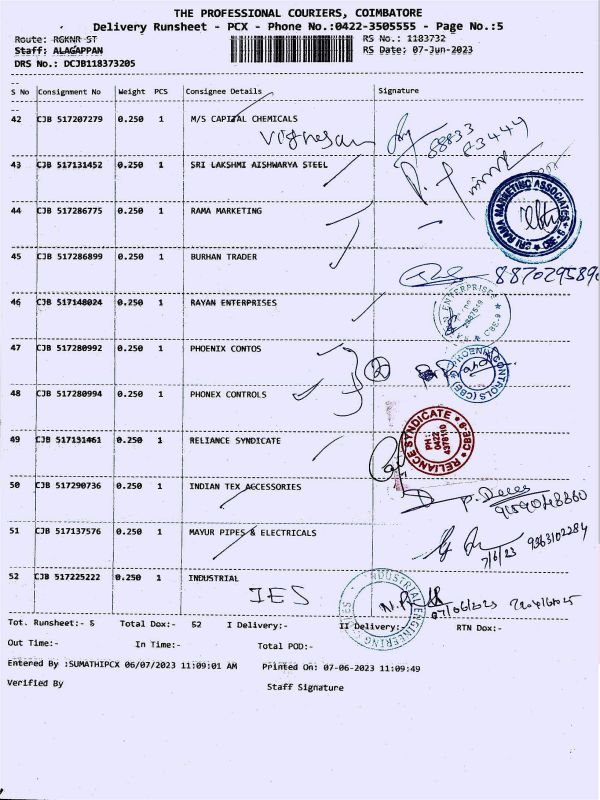 THE PROFESSIONAL COURIERS, COIMBATORE
Delivery Runsheet - PCX - Phone No.:0422-3505555 - Page No.:5
Route: RGKNR ST RS No.: 1183732
Staff: ALAGAPPAN RS Date: 07-Jun-2023
DRS No.: DCJB118373205
S No Consignment No Weight PCS Consignee Details Signature
42 CJB 517207279 0.250 1 M/S CAPITAL CHEMICALS
Vignesan 88833 83444
43 CJB 517131452 0.250 1 SRI LAKSHMI AISHWARYA STEEL
44 CJB 517286775 0.250 1 RAMA MARKETING
SRI RAMA MARKETING ASSOCIATES CBE-9
45 CJB 517286899 0.250 1 BURHAN TRADER
8870295890
46 CJB 517148024 0.250 1 RAYAN ENTERPRISES
ENTERPRISES CBE-9
47 CJB 517280992 0.250 1 PHOENIX CONTOS
2
PHOENIX CONTROLS (CBE)
48 CJB 517280994 0.250 1 PHONEX CONTROLS
49 CJB 517131461 0.250 1 RELIANCE SYNDICATE
RELIANCE SYNDICATE CBE-9 PH: 0422 4378110
50 CJB 517290736 0.250 1 INDIAN TEX ACCESSORIES
9159048860
51 CJB 517137576 0.250 1 MAYUR PIPES & ELECTRICALS
7/6/23 9363102284
52 CJB 517225222 0.250 1 INDUSTRIAL
IES
INDUSTRIAL ENGINEERING
07/06/2023
Tot. Runsheet:- 5 Total Dox:- 52 I Delivery:- II Delivery:- RTN Dox:-
Out Time:- In Time:- Total POD:-
Entered By :SUMATHIPCX 06/07/2023 11:09:01 AM Printed On: 07-06-2023 11:09:49
Verified By Staff Signature